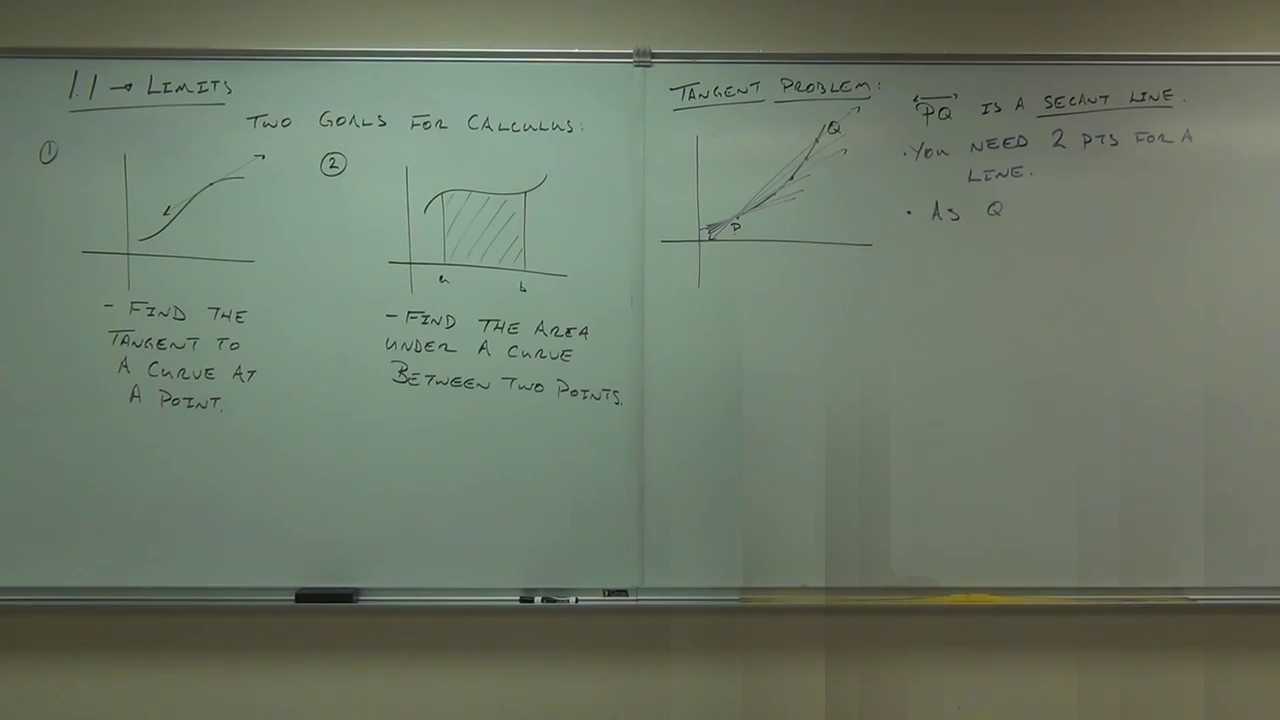 1.1 → LIMITS
TWO GOALS FOR CALCULUS:
①
- FIND THE
TANGENT TO
A CURVE AT
A POINT.
②
a b
- FIND THE AREA
UNDER A CURVE
BETWEEN TWO POINTS.
TANGENT PROBLEM:
Q
P
PQ IS A SECANT LINE.
· YOU NEED 2 PTS FOR A
LINE.
· AS Q